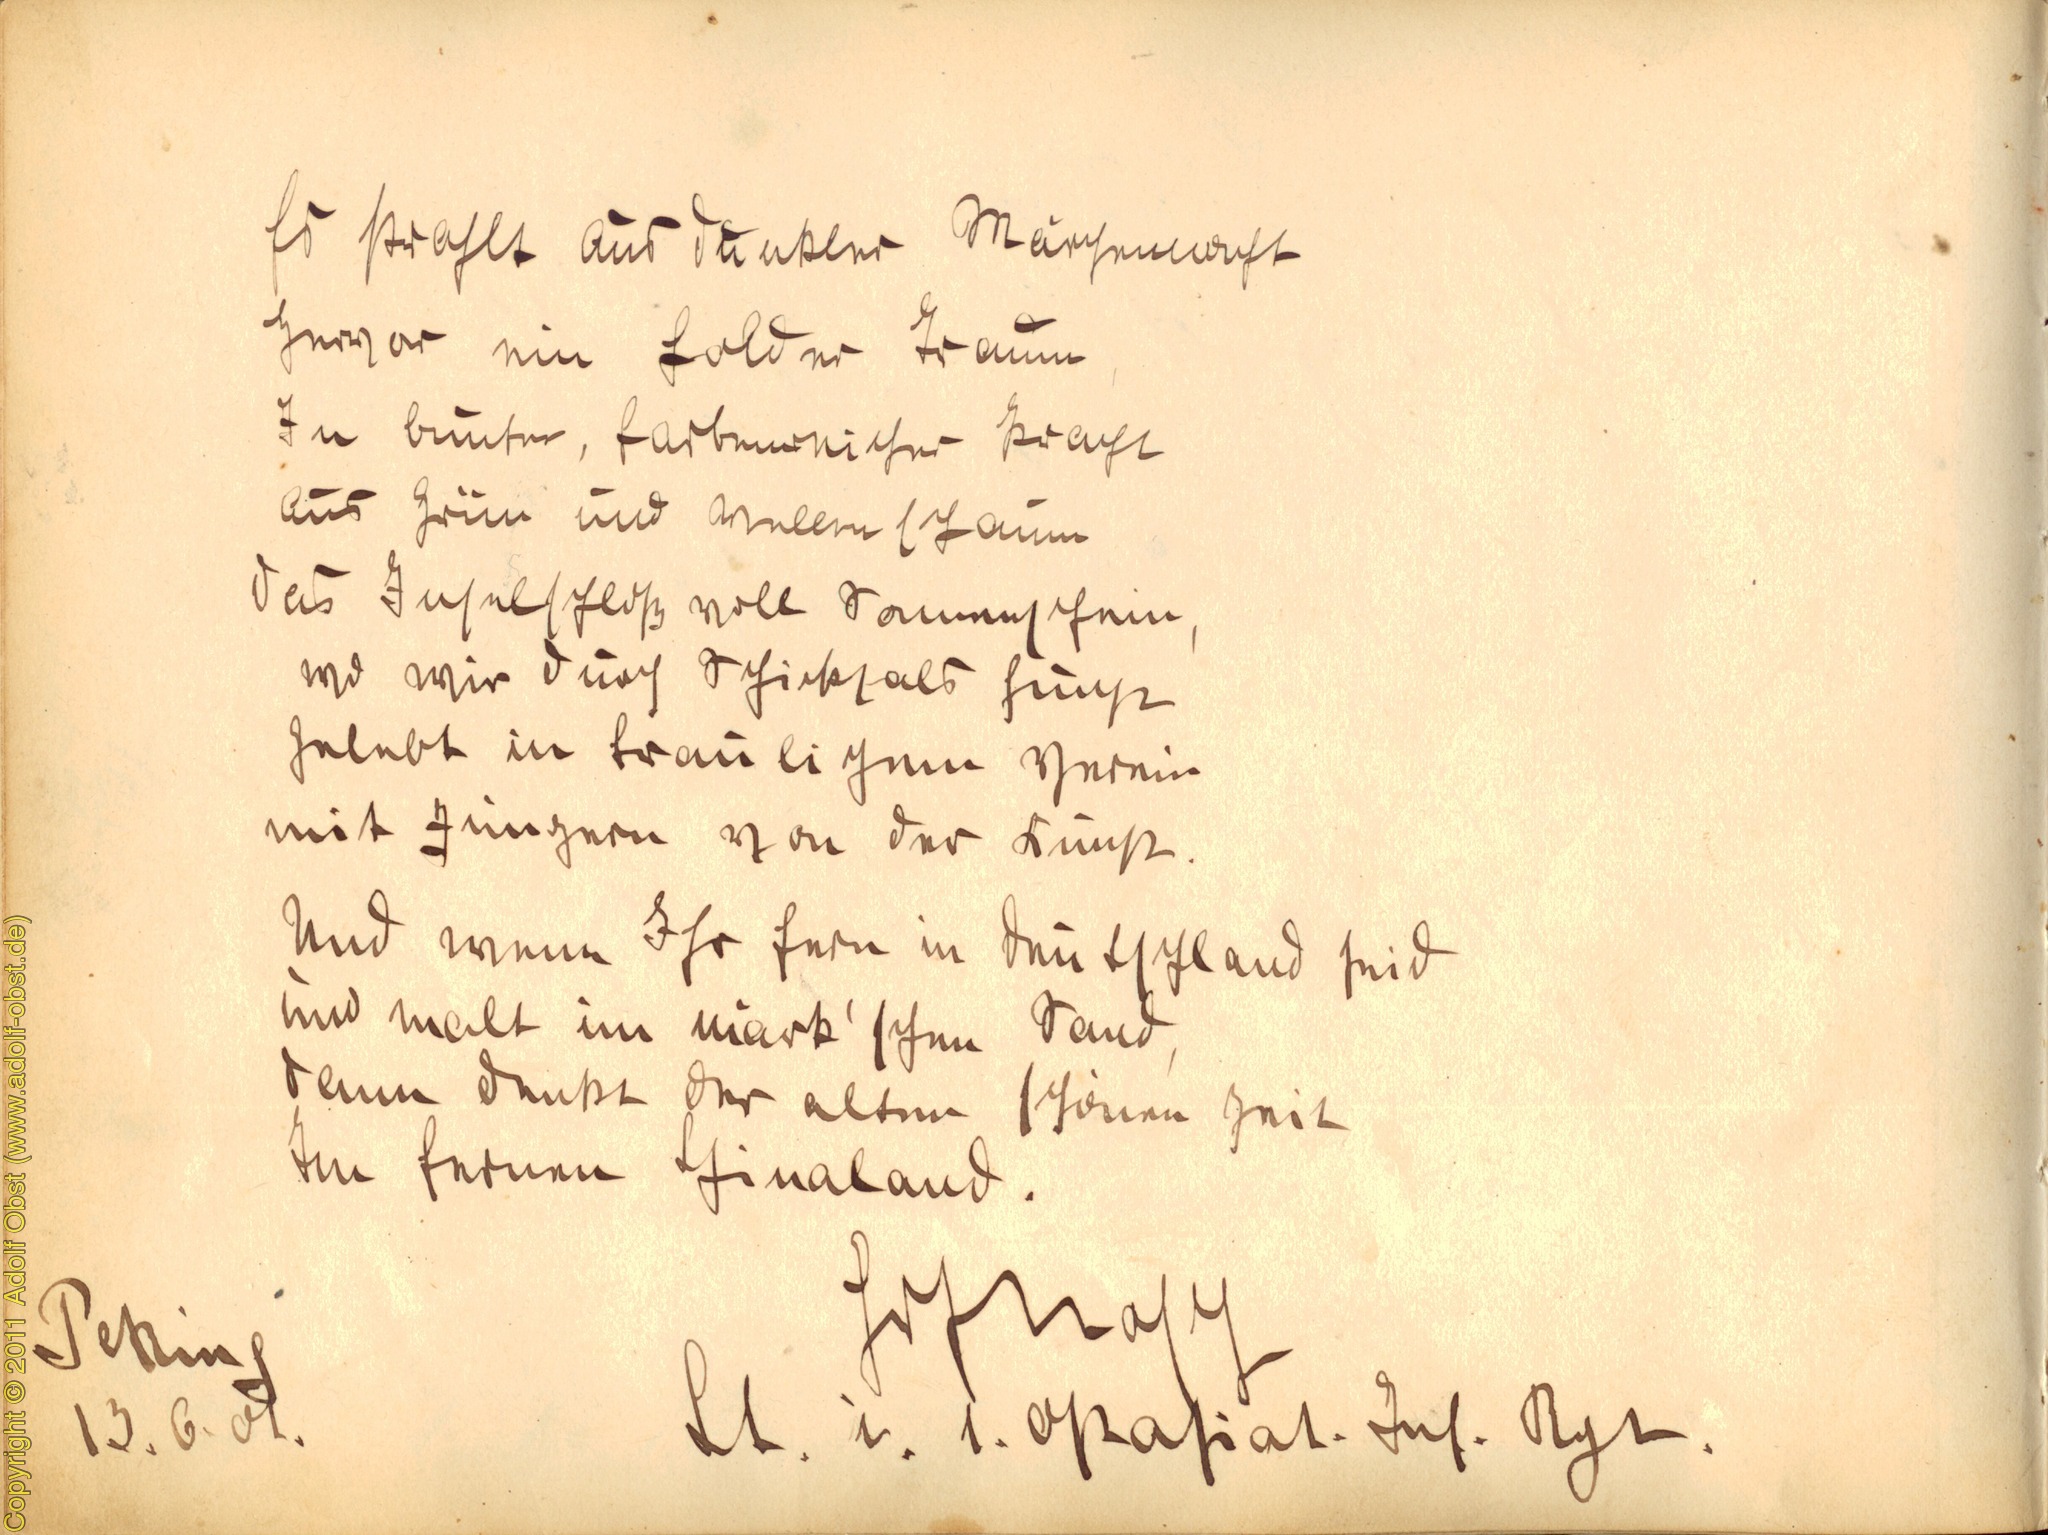 Es strahlt aus dunkler Märchennacht
hervor ein holder Traum
In bunter, farbenreicher Pracht
aus Grün und Wellenschaum
das Inselschloß voll Sonnenschein,
wo wir durch Schicksals Gunst
gelebt in traulichem Verein
mit Jüngern von der Kunst.
Und wenn Ihr fern in Deutschland seid
und malt im märk'schen Sand,
dann denkt der alten schönen Zeit
Im fernen Chinaland.
Peking
13.6.01.
Lt. i. 1. Ostasiat. Inf. Rgt.
Copyright © 2011 Adolf Obst (www.adolf-obst.de)